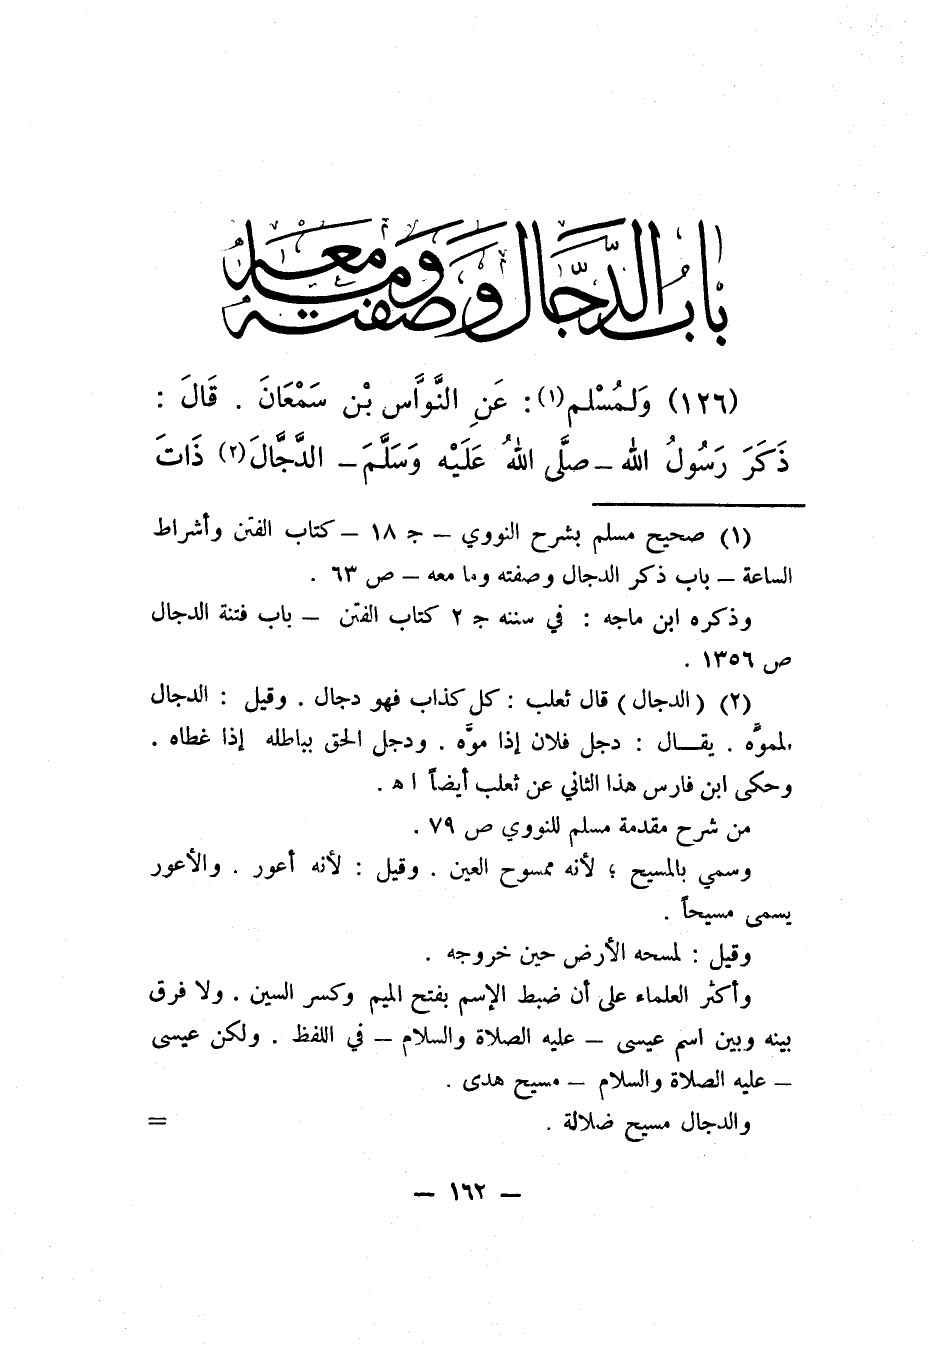 باب الدّجال وصفته وما معه
(١٢٦) وَلمُسْلم(١): عَنِ النَّوَّاس بْن سَمْعَانَ . قَالَ :
ذَكَرَ رَسُولُ الله ــ صلَّى اللهُ عَلَيْه وَسَلَّمَ ــ الدَّجَّالَ(٢) ذَاتَ
(١) صحيح مسلم بشرح النووي ــ جـ ١٨ ــ كتاب الفتن وأشراط
الساعة ــ باب ذكر الدجال وصفته وما معه ــ ص ٦٣ .
وذكره ابن ماجه : في سننه جـ ٢ كتاب الفتن ــ باب فتنة الدجال
ص ١٣٥٦ .
(٢) (الدجال) قال ثعلب : كل كذاب فهو دجال . وقيل : الدجال
المموَّه . يقـــال : دجل فلان إذا موَّه . ودجل الحق بباطله إذا غطاه .
وحكى ابن فارس هذا الثاني عن ثعلب أيضاً ا هـ .
من شرح مقدمة مسلم للنووي ص ٧٩ .
وسمي بالمسيح ؛ لأنه ممسوح العين . وقيل : لأنه أعور . والأعور
يسمى مسيحاً .
وقيل : لمسحه الأرض حين خروجه .
وأكثر العلماء على أن ضبط الإسم بفتح الميم وكسر السين . ولا فرق
بينه وبين اسم عيسى ــ عليه الصلاة والسلام ــ في اللفظ . ولكن عيسى
ــ عليه الصلاة والسلام ــ مسيح هدى .
والدجال مسيح ضلالة . =
ــ ١٦٢ ــ